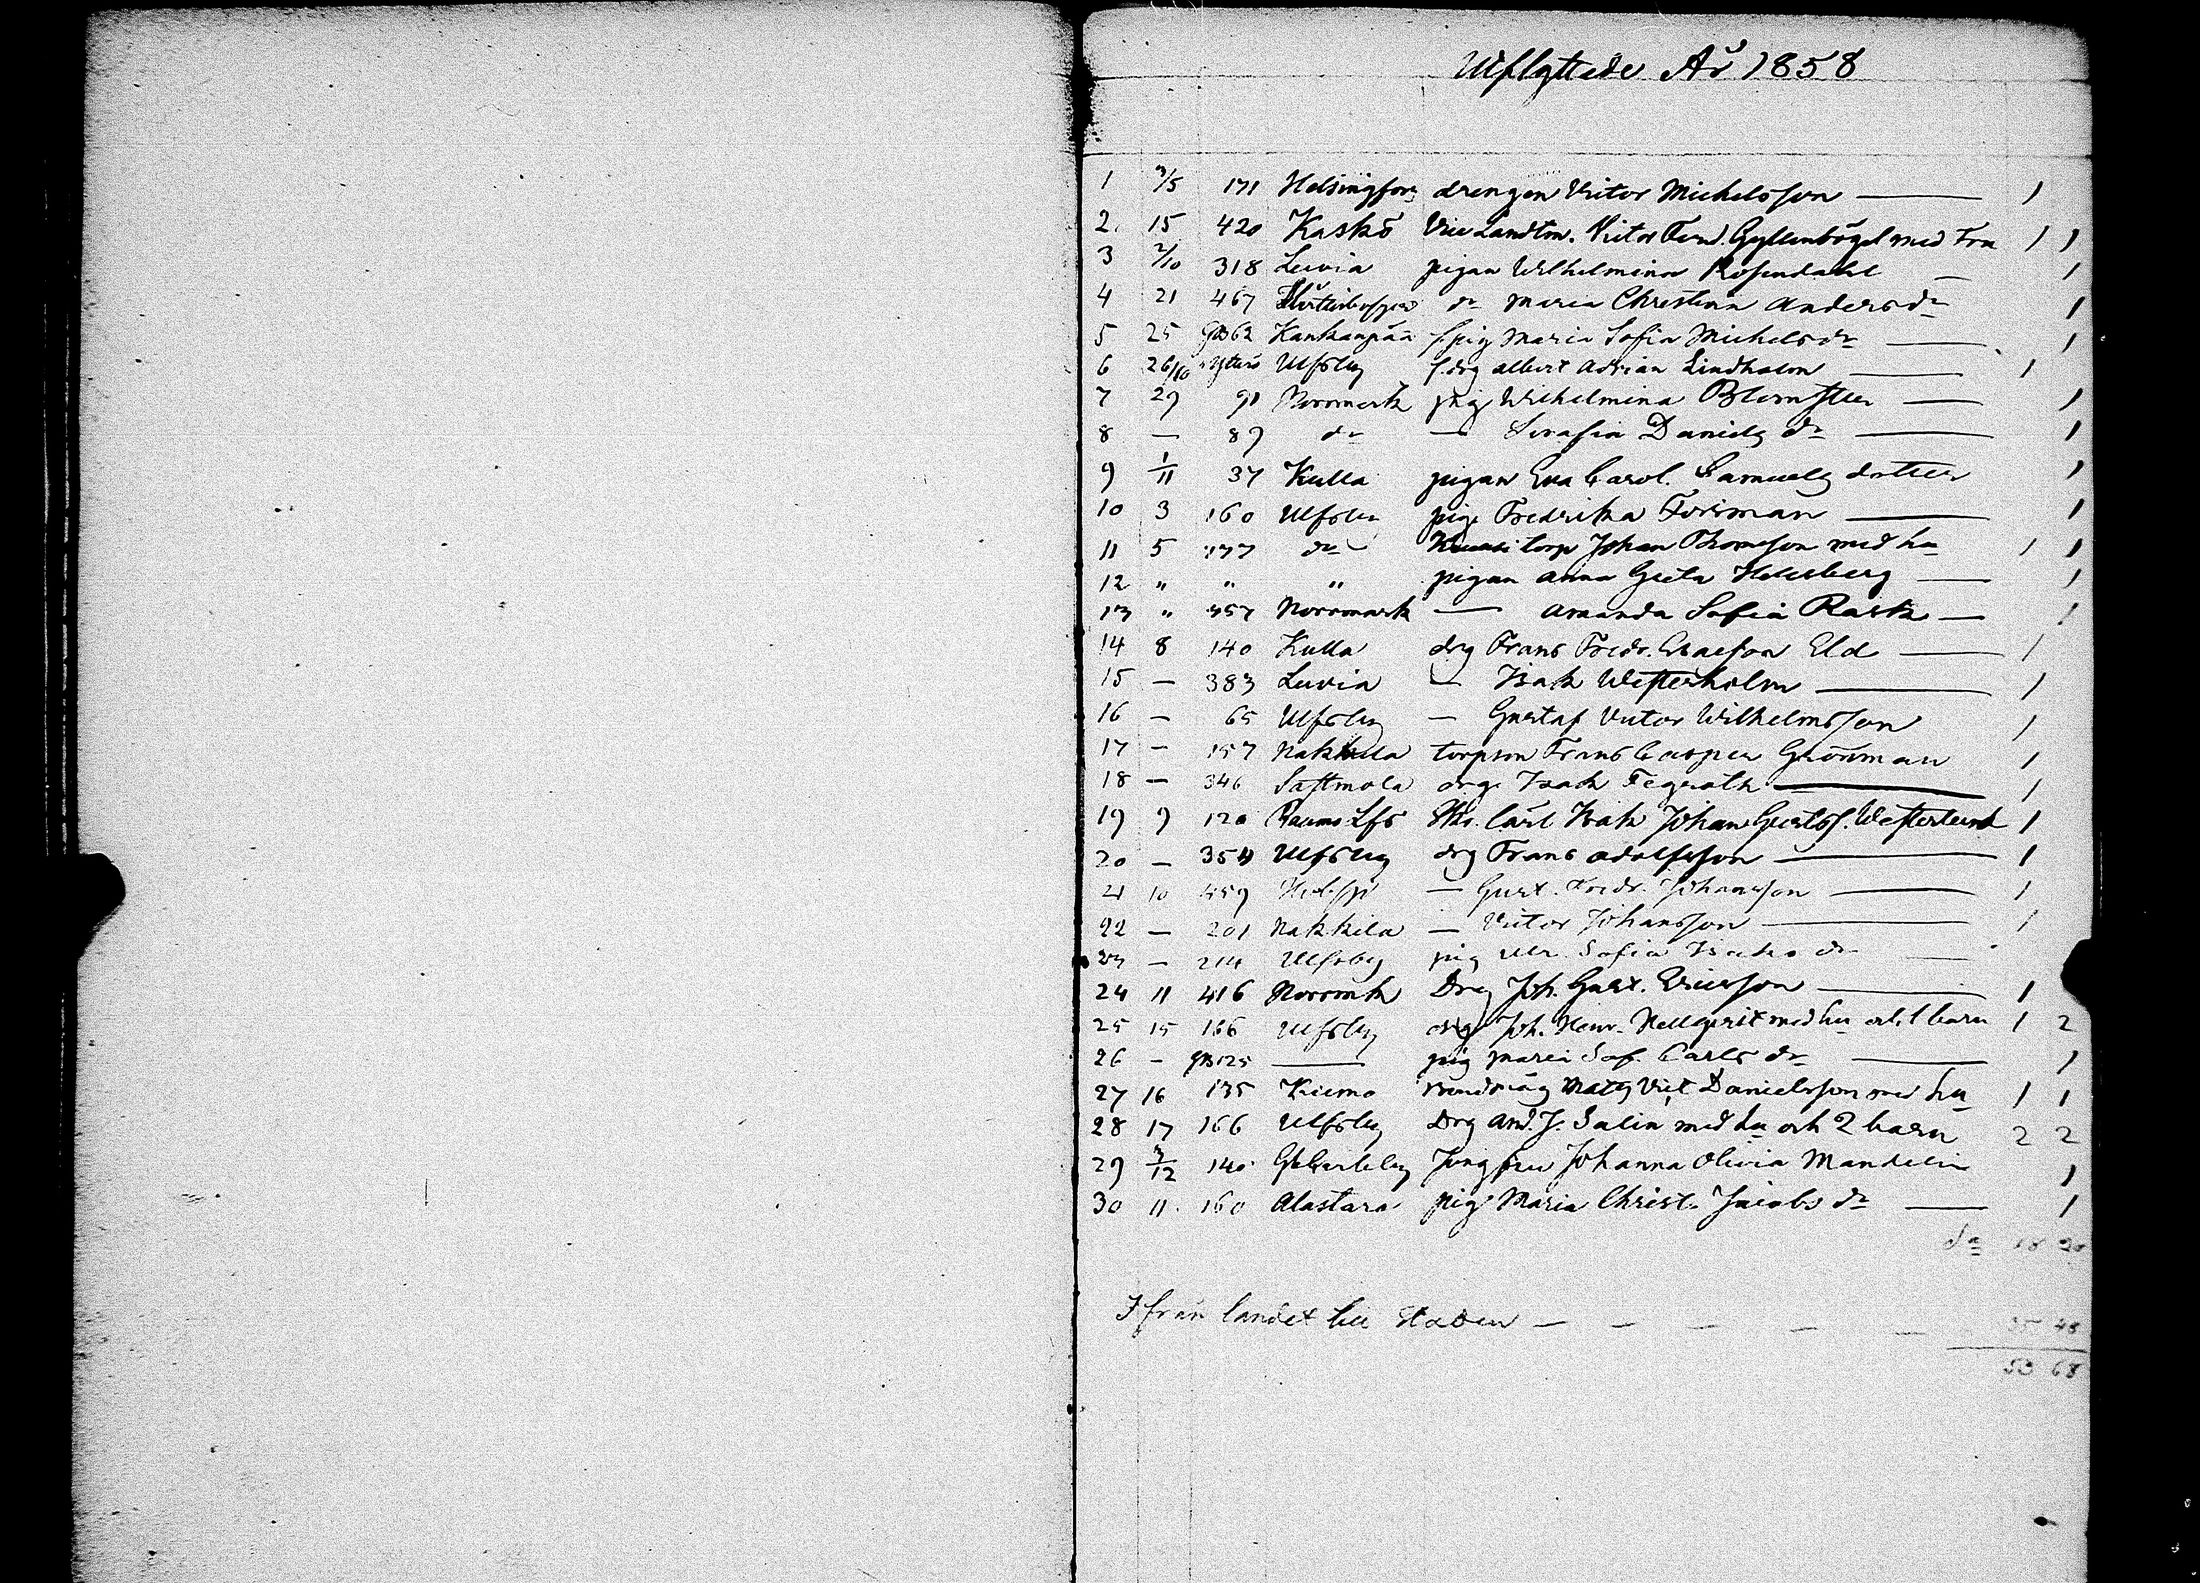 Utflyttade År 1858
1 7/5 171 Helsingfors drengen Victor Michelsson — 1
2. 15 420 Kaskö Vice Landtm. Victor Ferd. Gyllenbögel med Fru 1 1
3 2/10 318 Luvia pigan Wilhelmina Rosendahl — 1
4 21 467 dn Maria Christina Andersdr 1
5 25 62 Kankanpää f. pig Maria Sofia Michelsdr — 1
6 26/10 Ulfsby f. drg Albert Adrian Lindholm — 1
7 29 91 Norrmark pig Wilhelmina Blomster — 1
8 — 89 dn — Serafia Daniels dr — 1
9 1/11 37 Kulla pigan Eva Carol. Samuels dotter 1
10 3 160 Ulfsby pig. Fredrika Forsman — 1
11 5 177 dn torp Johan Thomsson med hu 1 1
12 " " " pigan Anna Greta Hellberg — 1
13 " 357 Norrmark — Amanda Sofia Rask — 1
14 8 140 Kulla drg Frans Fredr. Esaesson Eld — 1
15 — 383 Luvia — Isak Westerholm — 1
16 — 65 Ulfsby — Gustaf Victor Wilhelmsson 1
17 — 157 Nakkila torpson Frans Casper Grönman 1
18 — 346 Sastmola drg. Isak Tegrath — 1
19 9 120 Raumo Lfs Carl Isak Johan Gustafs. Westerlund 1
20 — 354 Ulfsby drg Frans Adolfsson — 1
21 10 459 — Gust. Fredr. Johansson — 1
22 — 201 Nakkila — Victor Johansson — 1
23 — 214 Ulfsby pig Ulr. Sofia Isaks dr —
24 11 416 Norrmk Drg Joh. Gust. Ericsson — 1
25 15 166 Ulfsby drg Joh. Henr. Hellqvist med hu och 1 barn 1 2
26 — 125 — pig Maria Sof. Carls dr — 1
27 16 135 Kiumo Matts Vict Danielsson med hu 1 1
28 17 166 Ulfsby Drg And. J. Salin med hu och 2 barn 2 2
29 3/12 140 Gbcarleby Jungfru Johanna Olivia Mandelin 1
30 11. 160 Alastaro pig Maria Christ. Jacobs dr — 1
18 20
Ifrån landet till Staden — — — — — 35 48
53 68